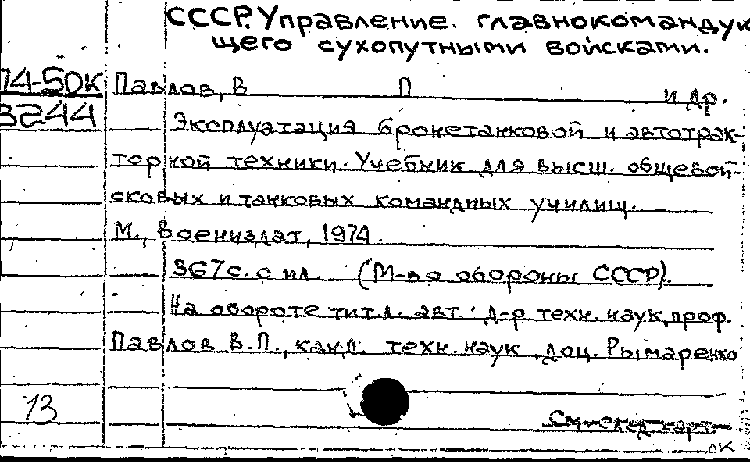 СССР. Управление главнокомандую
щего сухопутными войсками.
74-50К
3244
Павлов, В П и др.
Эксплуатация бронетанковой и автотрак-
торной техники. Учебник для высш. общевой-
сковых и танковых командных училищ.
М., Воениздат, 1974.
367 с. с ил. (М-во обороны СССР).
На обороте тит. л. авт.: д-р техн. наук, проф.
Павлов В.П., канд. техн. наук, доц. Рымаренко
13
См. след. карт.
ок